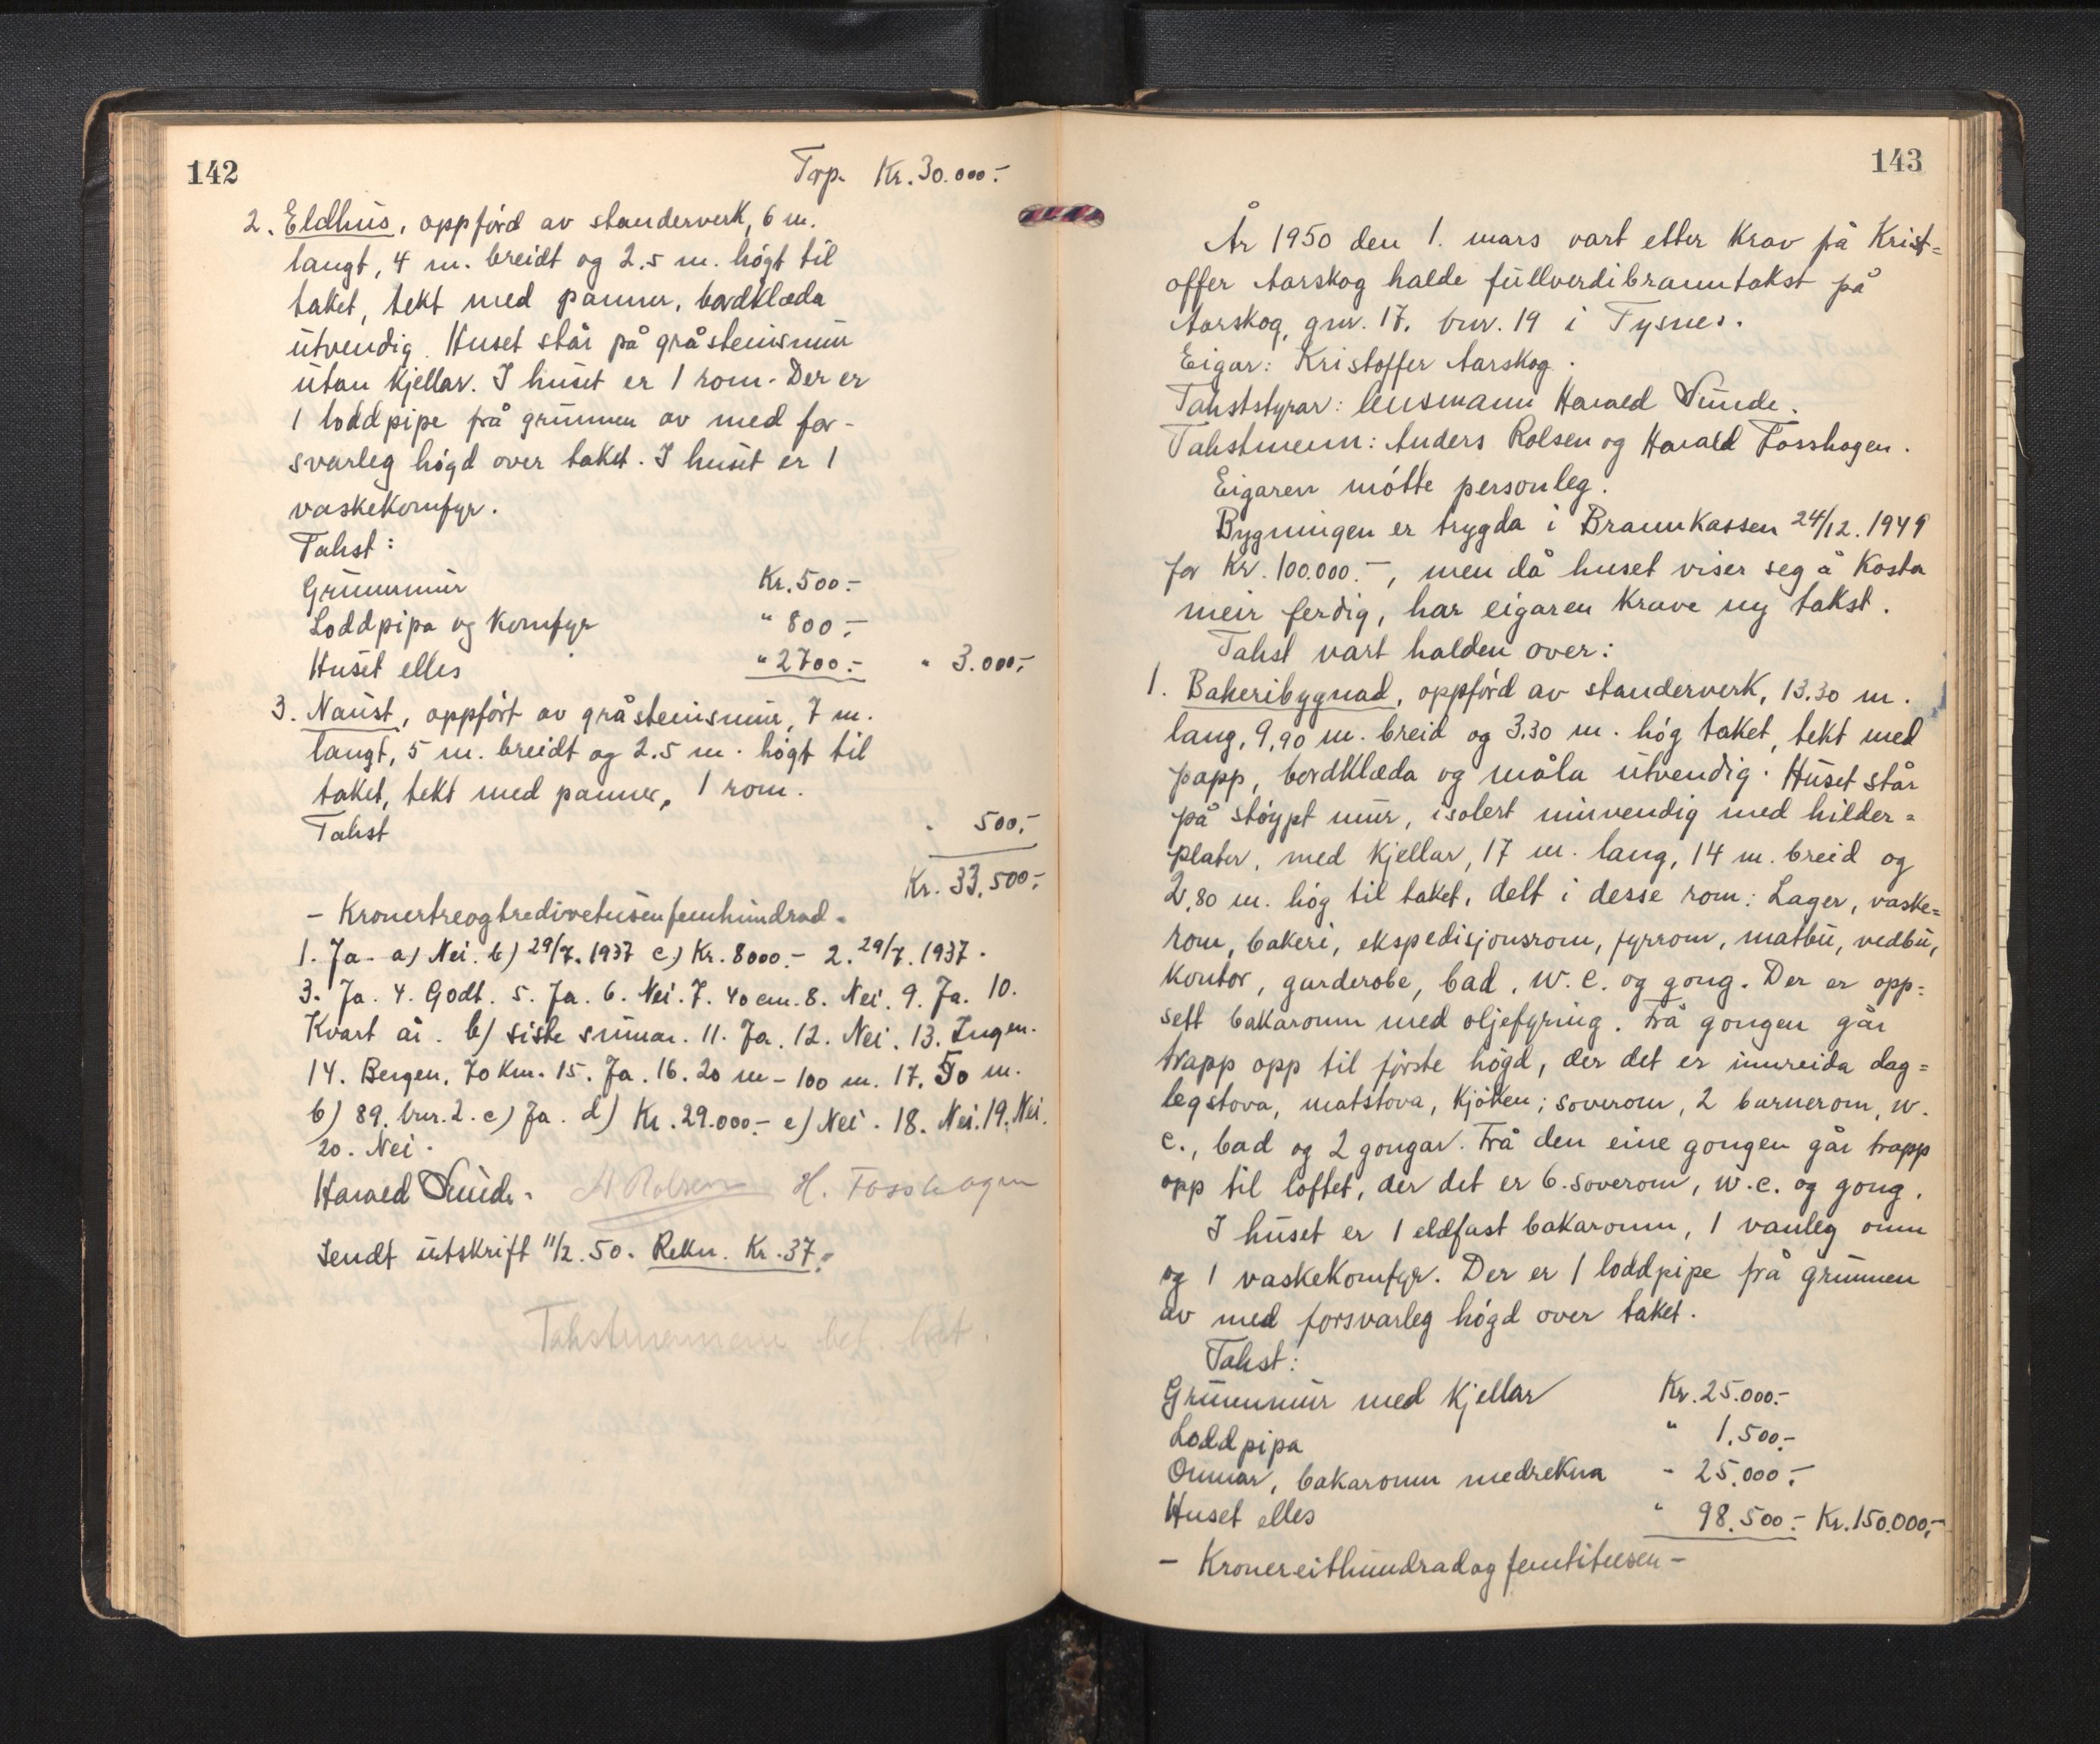 142
Trp. Kr. 30.000.-
2. Eldhus, oppförd av standerverk, 6 m.
langt, 4 m. breidt og 2.5 m. högt til
taket, tekt med panner, bordklæda
utvendig. Huset står på gråsteinsmur
utan kjellar. I huset er 1 rom. Der er
1 loddpipe frå grunnen av med for-
svarleg högd over taket. I huset er 1
vaskekomfyr.
Takst:
Grunnmur Kr. 500.-
Loddpipa og komfyr " 800.-
Huset elles " 2700.- " 3.000,-
3. Naust, oppfört av gråsteinsmur, 7 m.
langt, 5 m. breidt og 2.5 m. högt til
taket, tekt med panner, 1 rom.
Takst " 500,-
Kr. 33.500.-
- Kronertreogtredivetusenfemhundrad -
1. Ja. a) Nei. b) 29/7. 1937 c) Kr. 8000.- 2. 29/7. 1937.
3. Ja. 4. Godt. 5. Ja. 6. Nei. 7. 40 cm. 8. Nei. 9. Ja. 10.
Kvart år. b) siste sumar. 11. Ja. 12. Nei. 13. Ingen.
14. Bergen, 70 km. 15. Ja. 16. 20 m - 100 m. 17. 50 m.
b) 89. bnr. 2. c) Ja. d) Kr. 29.000.- e) Nei. 18. Nei. 19. Nei.
20. Nei.
Harald Sunde. A Rolsen H. Fosshagen
Sendt utskrift 11/2. 50. Rekn. Kr. 37.-
Takstmennene bet.
143
År 1950 den 1. mars vart etter krav på Krist=
offer Aarskog halde fullverdibranntakst på
Aarskog, gnr. 17, bnr. 19 i Tysnes.
Eigar: Kristoffer Aarskog.
Takststyrar: lensmann Harald Sunde.
Takstmenn: Anders Rolsen og Harald Fosshagen.
Eigaren mötte personleg.
Bygningen er trygda i Brannkassen 24/12. 1949
for Kr. 100.000.-, men då huset viser seg å kosta
meir ferdig, har eigaren krave ny takst.
Takst vart halden over:
1. Bakeribygnad, oppförd av standerverk, 13.30 m.
lang, 9,90 m. breid og 3.30 m. hög taket, tekt med
papp, bordklæda og måla utvendig. Huset står
på stöypt mur, isolert innvendig med hilder=
plater, med kjellar, 17 m. lang, 14 m. breid og
2,80 m. hög til taket, delt i desse rom: Lager, vaske=
rom, bakeri, ekspedisjonsrom, fyrrom, matbu, vedbu,
kontor, garderobe, bad, w.c. og gong. Der er opp=
sett bakaromn med oljefyring. Frå gongen går
trapp opp til förste högd, der det er innreida dag=
legstova, matstova, kjöken, soverom, 2 barnerom, w.
c., bad og 2 gongar. Frå den eine gongen går trapp
opp til loftet, der det er 6 soverom, w.c. og gong.
I huset er 1 eldfast bakaromn, 1 vanleg omn
og 1 vaskekomfyr. Der er 1 loddpipe frå grunnen
av med forsvarleg högd over taket.
Takst:
Grunnmur med kjellar Kr. 25.000.-
Loddpipa " 1.500.-
Omnar, bakaromn medrekna " 25.000.-
Huset elles " 98.500.- Kr. 150.000,-
- Kronereithundradogfemtitusen -